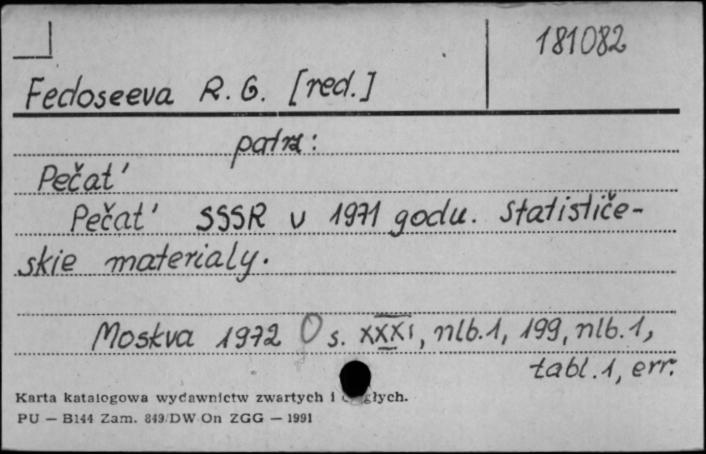 181082
Fedoseeva R. G. [red.]
patrz:
Pečat'
Pečat' SSSR v 1971 godu. Statističe-
skie materialy.
Moskva 1972 s. XXXI, nlb.1, 199, nlb.1,
tabl.1, err.
Karta katalogowa wydawnictw zwartych i ciągłych.
PU — B144 Zam. 849/DW On ZGG — 1991